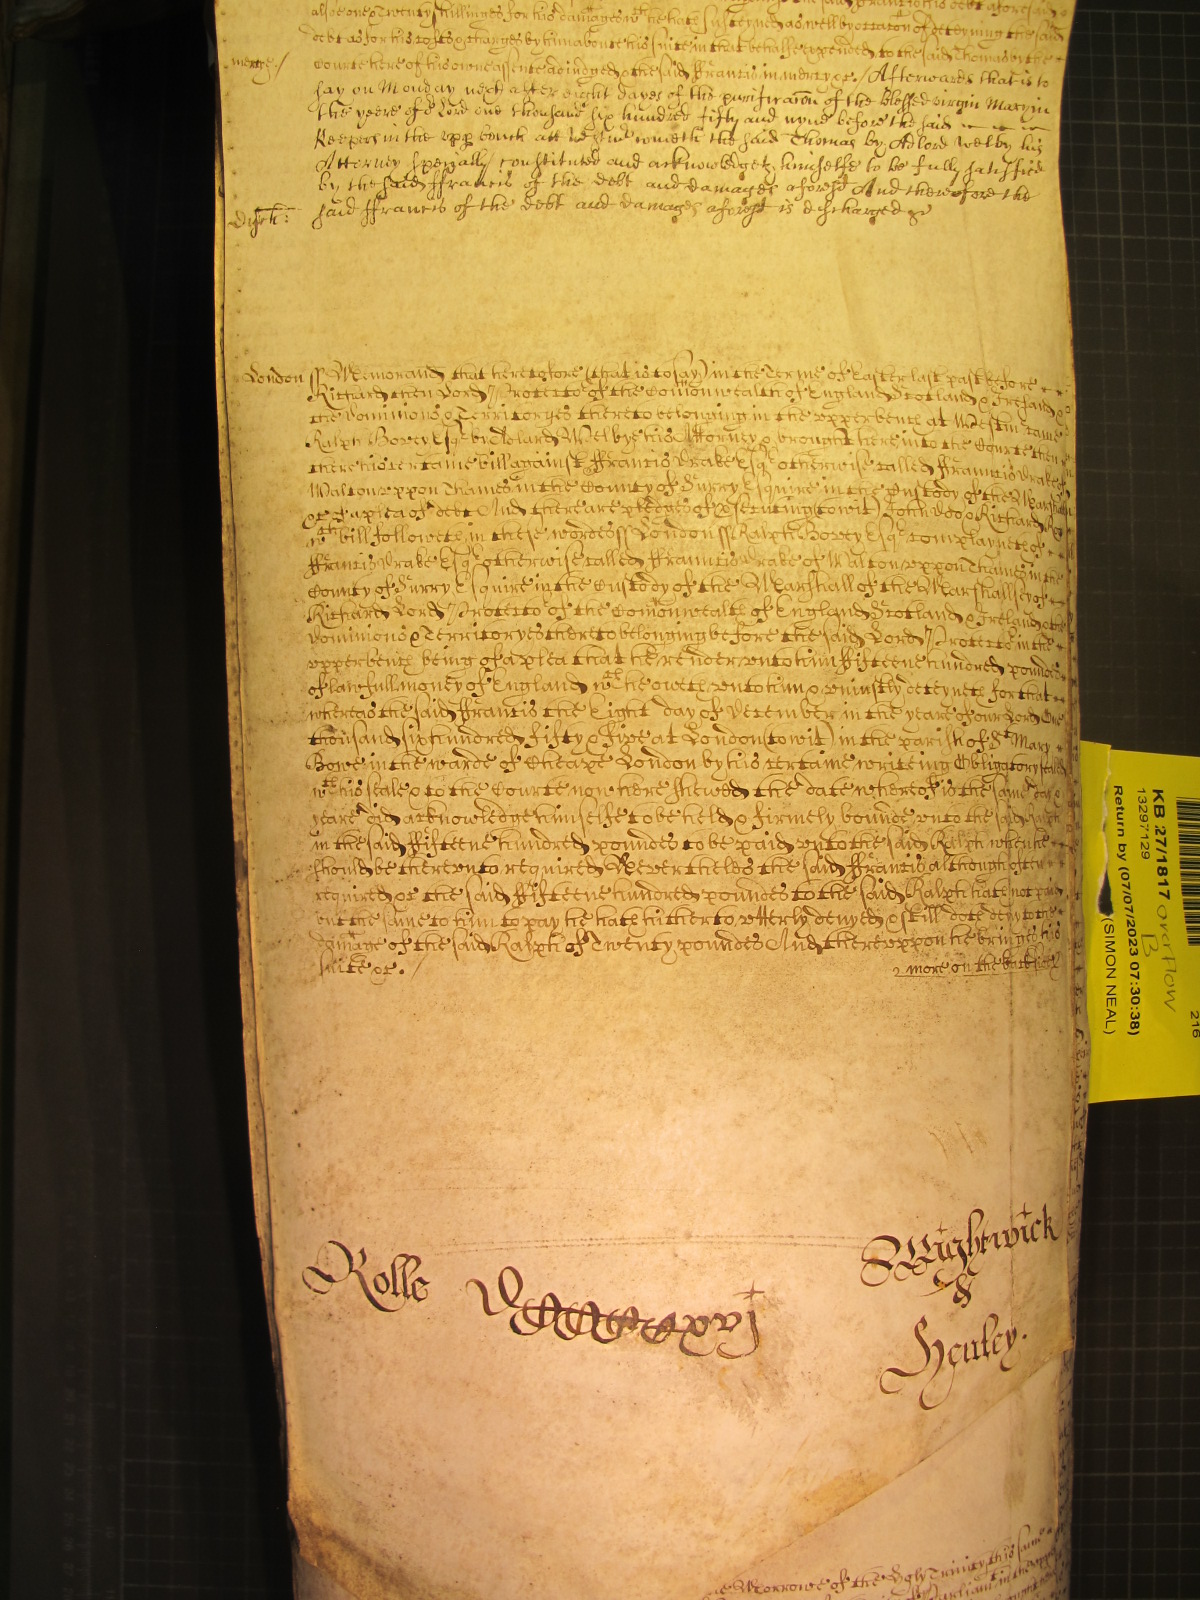 also one & Twenty shillinges for his damages wch he hath susteyned as well by occacon of deteyning the said
debt as for his costs & charges by him aboute his suite in that behalfe expended to the said Thomas by the
mercye / Courte here of his owne assente adiudged & the said Ffrancis in mercy &c / Afterwards that is to
say on Monday next after eight dayes of the purificacon of the blessed virgin Mary in
the yeere of or Lord one thousand six hundred fifty and nyne before the said
Keepers in the upp bench att cometh the said Thomas by Adlord Welby his
Atterney specially constituted and acknowledgeth himselfe to be fully satisfied
by the said Ffrancis of the debt and damages aforesd And therefore the
Disch: said Ffrancis of the debt and damages aforesd is discharged &c
London ss Memorand that heretofore (that is to say) in the Terme of Easter last past before
Richard then Lord Protector of the Comonwealth of England Scotland & Ireland &
the Dominions & Territoryes thereto belonging in the upper bench at Westm came
Ralph Bovey Esqr by Adlard Welbye his Attorney & brought here into the Courte then
there his certaine bill against Ffrancis Drake Esqr otherwise called Ffrancis Drake of
Walton uppon Thames in the County of Surry Esquire in the Custody of the Marshall
&c of a plea of debt And there are pledges of prosecuting (to wit) John Doo & Richard Roo
wch bill followeth in these wordes ss London ss Ralph Bovey Esqr complayneth of
Ffrancis Drake Esqr otherwise called Ffrancis Drake of Walton uppon Thames in the
County of Surry Esquire in the Custody of the Marshall of the Marshallsey of
Richard Lord Protector of the Comonwealth of England Scotland & Ireland & the
Dominions & Territoryes thereto belonging before the said Lord Protector in the
upper bench being of a plea that he render unto him Ffifteene hundred poundes
of lawfull money of England wch he oweth unto him & uniustly deteyneth for that
whereas the said Ffrancis the Eight day of December in the yeare of our Lord One
thousand six hundred fifty & five at London (to wit) in the parish of St Mary
Bowe in the warde of Cheape London by his certaine writeing Obligatory sealed
wth his seale & to the Courte now here shewed the date whereof is the same day &
yeare did acknowledge himselfe to be held & firmely bounde unto the said Ralph
in the said Ffifteene hundred poundes to be paid unto the said Ralph when he
should be thereunto required Neverthelss the said Ffrancis although often
required &c the said Ffifteene hundred poundes to the said Ralph hath not paid
but the same to him to pay he hath hitherto utterly denyed & still doth deny to the
damage of the said Ralph of Twenty poundes And thereuppon he bringes his
suite &c. /
2 more on the backside
Rolle DCCCCxvj
Wightwick
&
Henley.
Morrowe of the Holy Trinity this same
KB 27/1817 overflow
B
13297129
Return by (07/07/2023 07:30:38)
(SIMON NEAL)
216